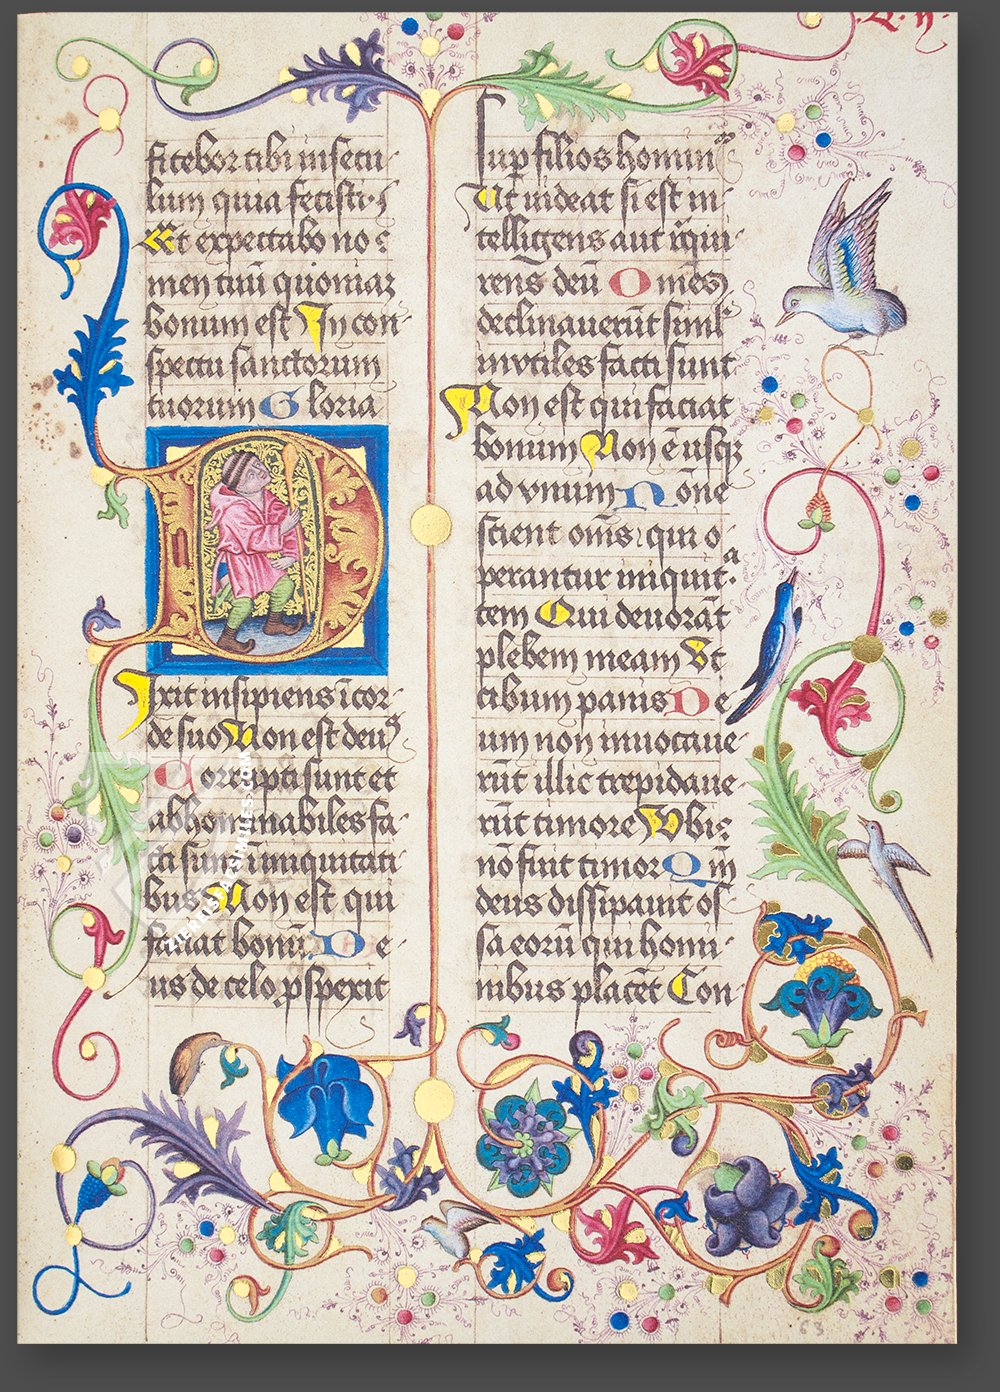 fitebor tibi in secu-
lum quia fecisti :
Et expectabo no-
men tuū quoniaȝ
bonum est In con-
spectu sanctorum
tuorum Gloria
Dixit insipiens ī cor-
de suo Non est deus
Corrupti sunt et
abhominabiles fa-
cti sunt ī iniquitati
bus Non est qui
faciat bonū De-
us de celo pspexit
sup filios hominū
Ut uideat si est in-
telligens aut r̄qui-
rens deū Omēs
declinauerūt siml'
invtiles facti sunt
Non est qui faciat
bonum Non ē usqȝ
ad vnum Nonē
scient om̄s qui o-
perantur iniquita-
tem Qui deuorāt
plebem meam Vt
cibum panis De-
um non inuocaue-
rūt illic trepidaue
rūt timore Vbi:
nō fuit timor Qm̄
deus dissipauit os-
sa eorū qui homi-
nibus placēt Con-
63